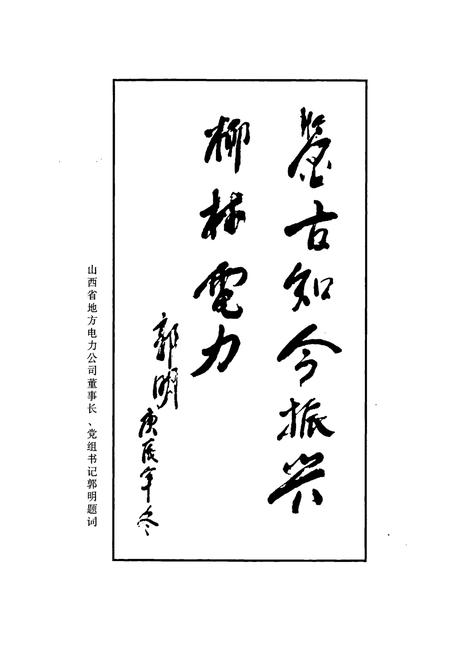 鉴古知今振兴
柳林電力
郭明
庚辰年冬
山西省地方电力公司董事长、党组书记郭明题词